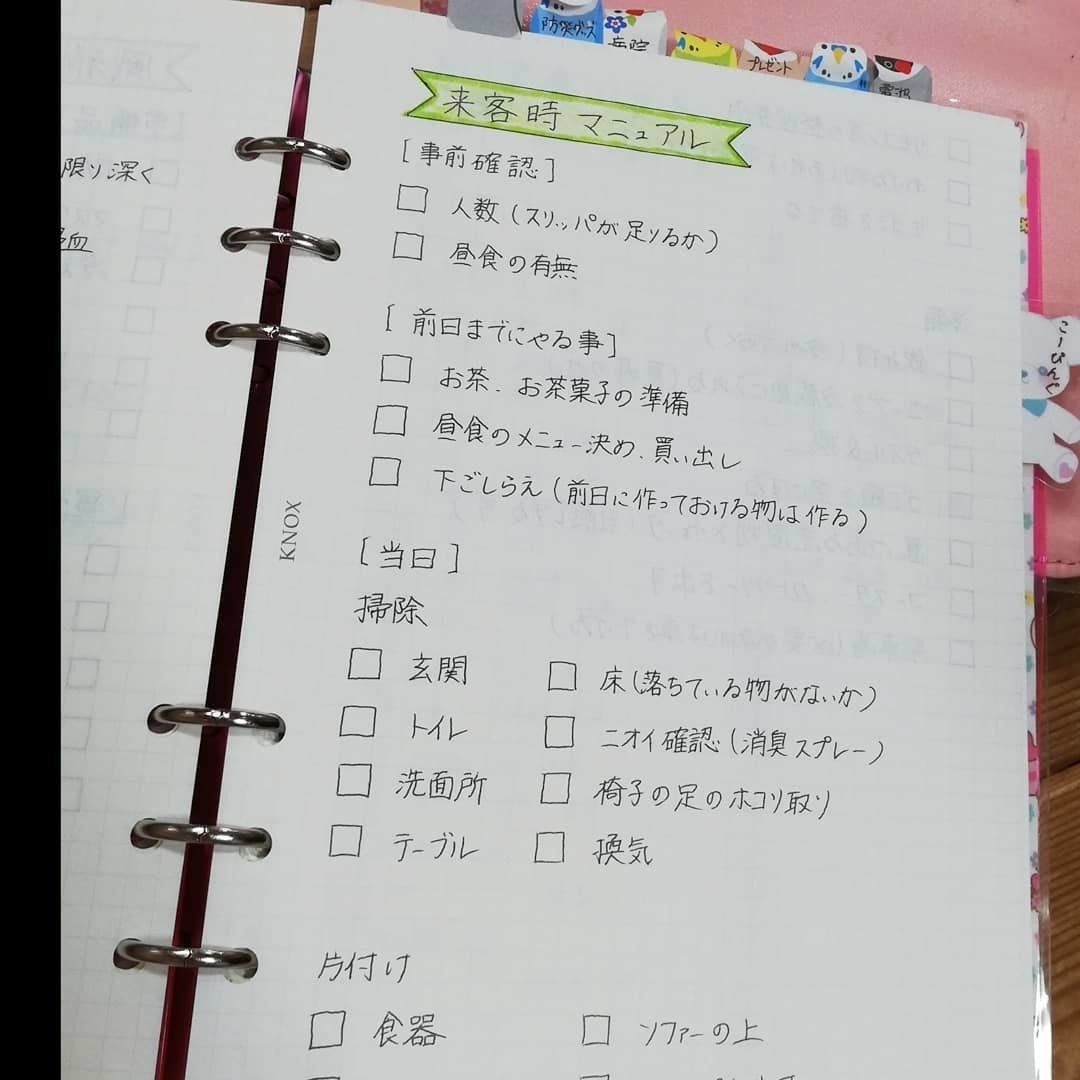 防災グッズ
病院
プレゼント
限り深く
来客時 マニュアル
[事前確認]
□ 人数(スリッパが足りるか)
□ 昼食の有無
[前日までにやる事]
□ お茶、お茶菓子の準備
□ 昼食のメニュー決め、買い出し
□ 下ごしらえ(前日に作っておける物は作る)
[当日]
掃除
□ 玄関 □ 床(落ちている物がないか)
□ トイレ □ ニオイ確認(消臭スプレー)
□ 洗面所 □ 椅子の足のホコリ取り
□ テーブル □ 換気
片付け
□ 食器 □ ソファーの上
KNOX
こーぴんぐ